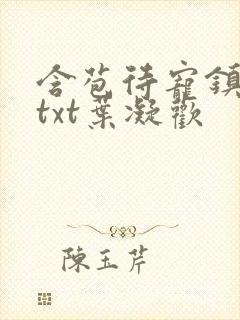 含苞待寵鎮
txt葉凝歡
陳玉芹